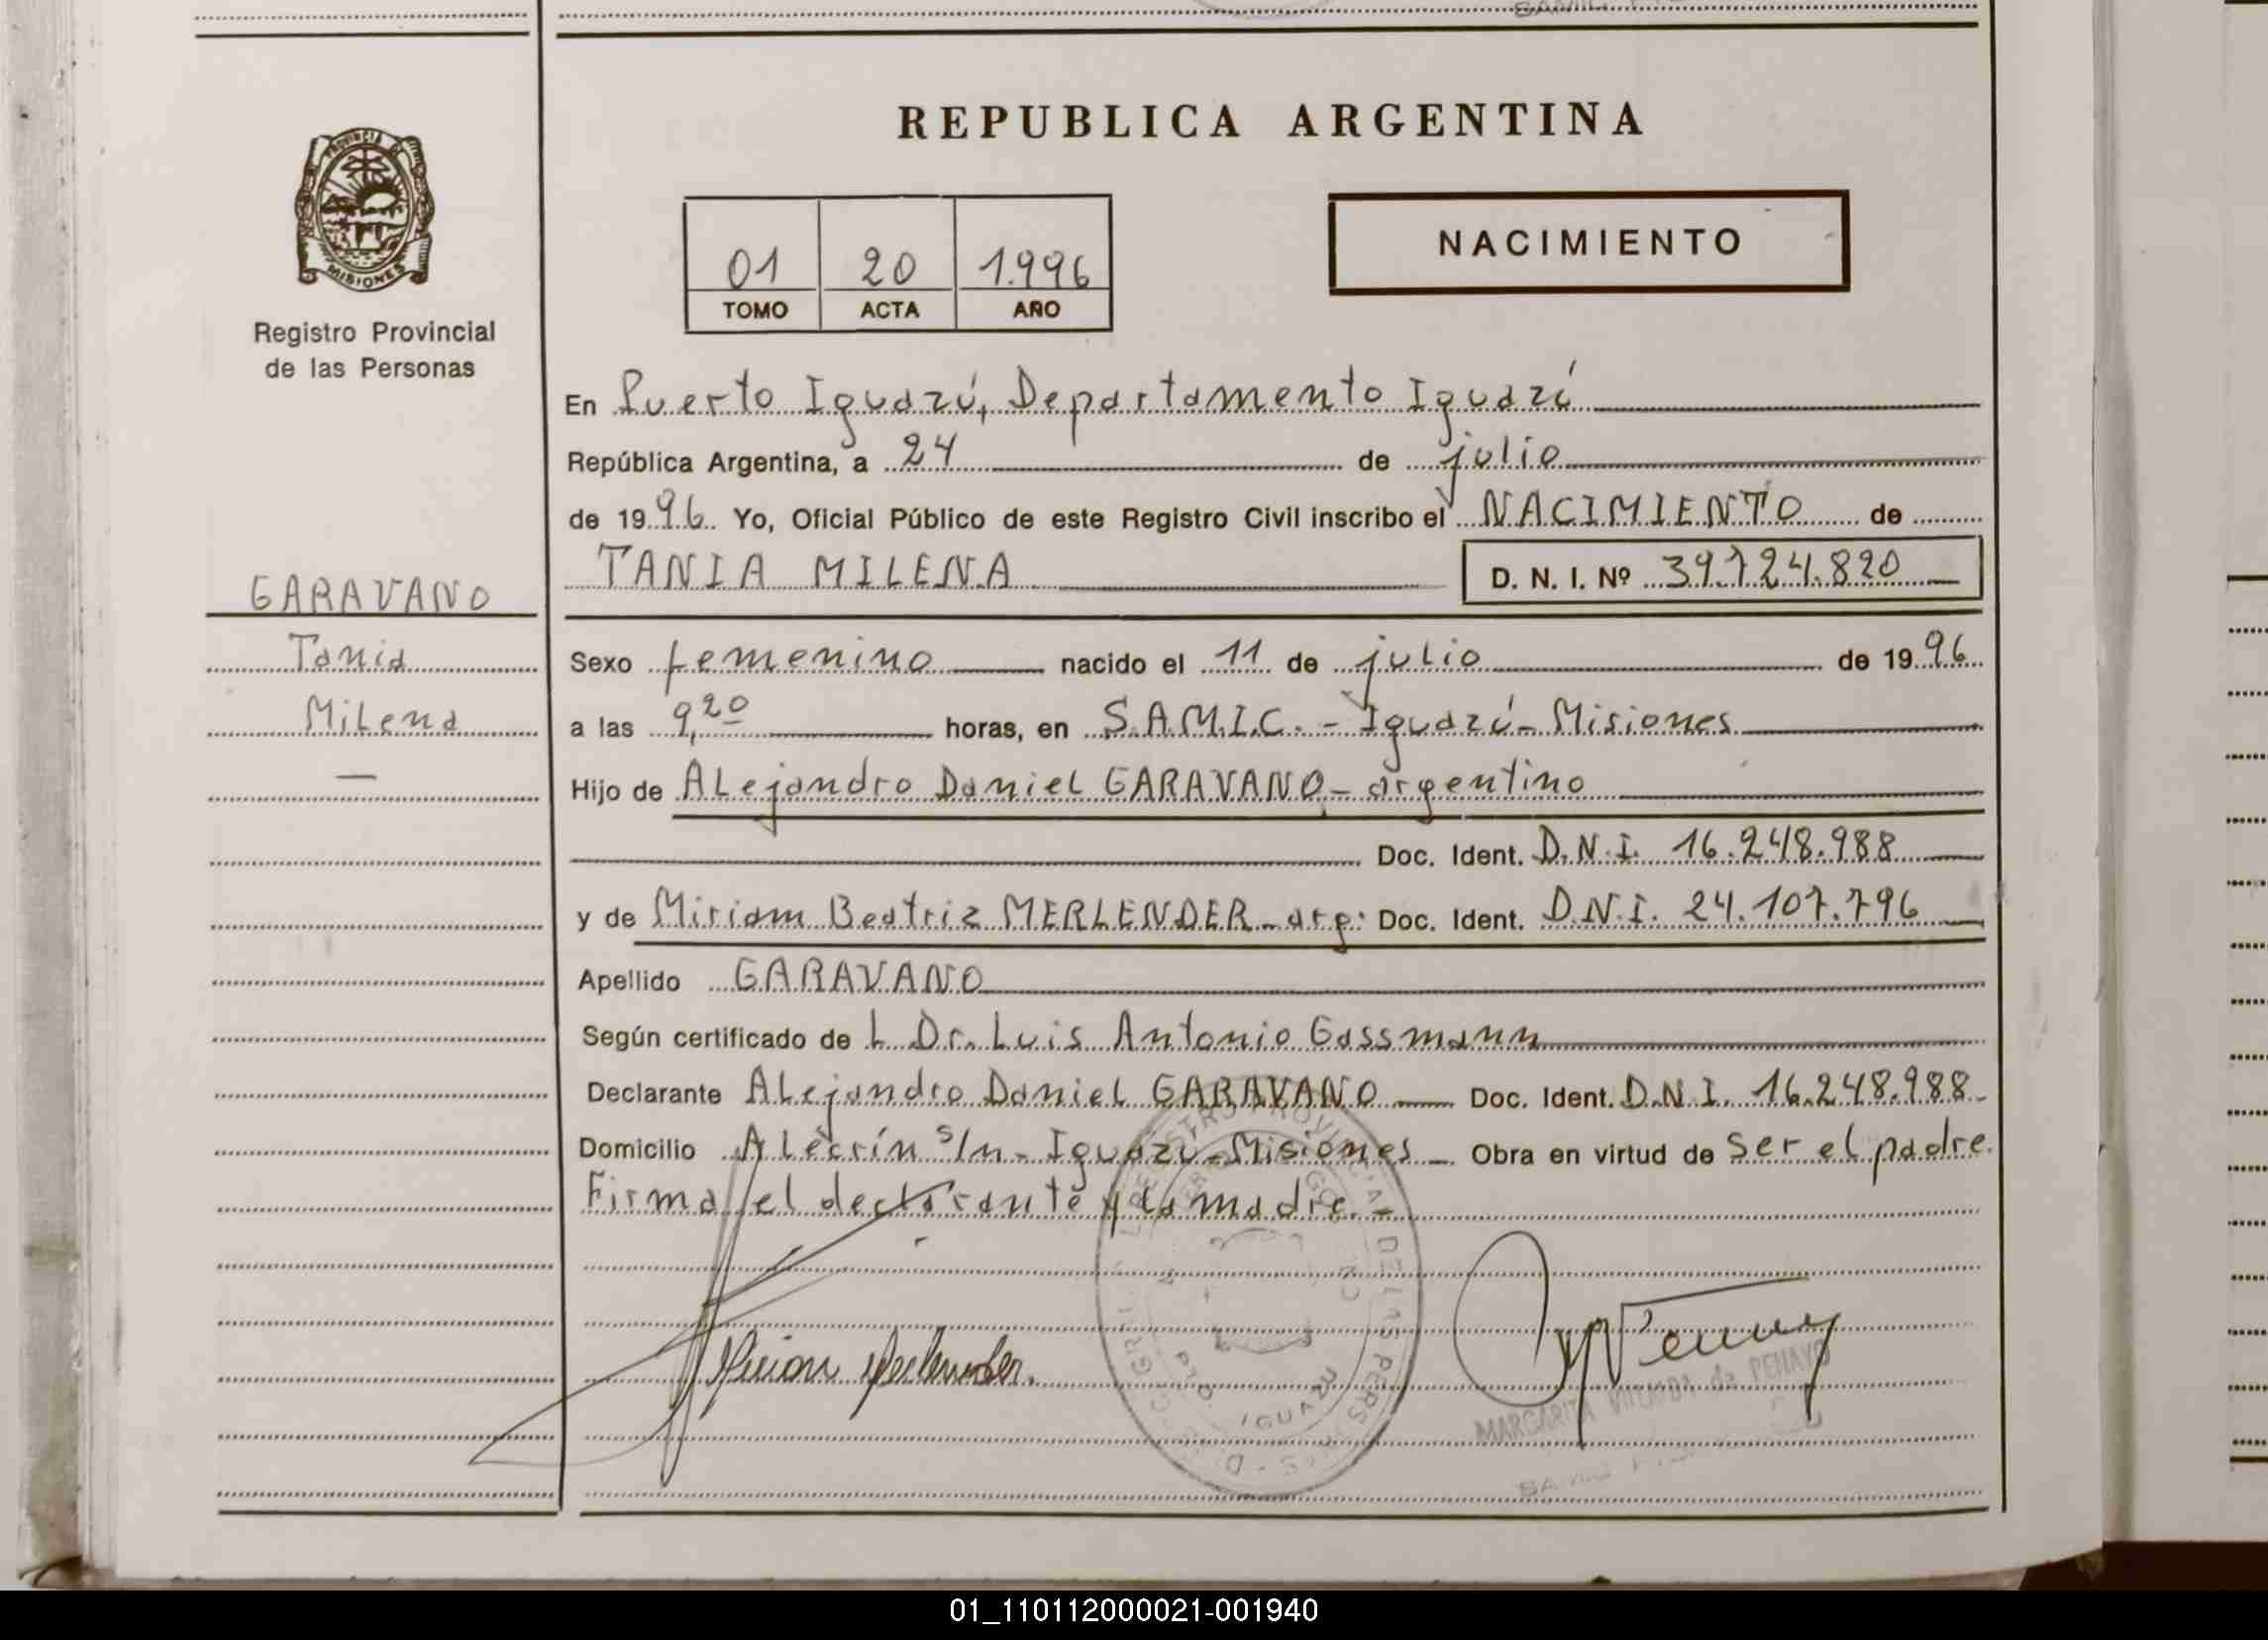 REPUBLICA ARGENTINA
PROVINCIA DE
MISIONES
Registro Provincial
de las Personas
01 20 1.996
TOMO ACTA AÑO
NACIMIENTO
En Puerto Iguazú, Departamento Iguazú
República Argentina, a 24 de julio
de 1996 Yo, Oficial Público de este Registro Civil inscribo el NACIMIENTO de
TANIA MILENA D. N. I. Nº 39.724.820
GARAVANO
Tania
Milena
Sexo femenino nacido el 11 de julio de 1996
a las 9,20 horas, en S.A.M.I.C. - Iguazú - Misiones
Hijo de Alejandro Daniel GARAVANO - argentino
Doc. Ident. D.N.I. 16.248.988
y de Miriam Beatriz MERLENDER - arg: Doc. Ident. D.N.I. 24.107.796
Apellido GARAVANO
Según certificado de L Dr. Luis Antonio Gassmann
Declarante Alejandro Daniel GARAVANO Doc. Ident. D.N.I. 16.248.988-
Domicilio Alecrín s/n - Iguazú - Misiones - Obra en virtud de Ser el padre.
Firma el declarante y la madre. -
Miriam Merlender.
IGUAZU
MARGARITA de PENAYO
01_110112000021-001940